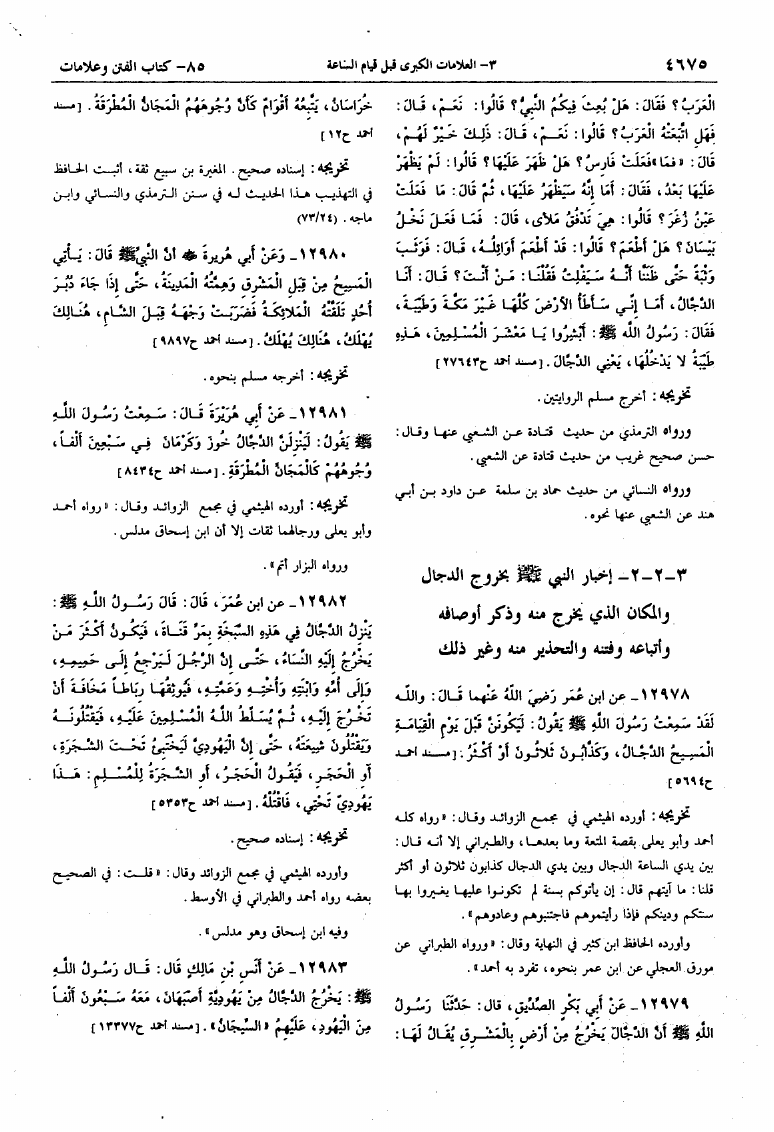 ٤٦٧٥
٣- العلامات الكبرى قبل قيام الساعة
٨٥- كتاب الفتن وعلامات
الْعَرَبُ؟ فَقَالَ: هَلْ بُعِثَ فِيكُمُ النَّبِيُّ؟ قَالُوا: نَعَمْ، قَالَ:
فَهَلِ اتَّبَعَتْهُ الْعَرَبُ؟ قَالُوا: نَعَمْ، قَالَ: ذَلِكَ خَيْرٌ لَهُمْ،
قَالَ: «فَمَا» فَعَلَتْ فَارِسُ؟ هَلْ ظَهَرَ عَلَيْهَا؟ قَالُوا: لَمْ يَظْهَرْ
عَلَيْهَا بَعْدُ، فَقَالَ: أَمَا إِنَّهُ سَيَظْهَرُ عَلَيْهَا، ثُمَّ قَالَ: مَا فَعَلَتْ
عَيْنُ زُغَرَ؟ قَالُوا: هِيَ تَدْفُقُ مَلأَى، قَالَ: فَمَا فَعَلَ نَخْلُ
بَيْسَانَ؟ هَلْ أَطْعَمَ؟ قَالُوا: قَدْ أَطْعَمَ أَوَائِلُهُ، قَالَ: فَوَثَبَ
وَثْبَةً حَتَّى ظَنَنَّا أَنَّهُ سَيَفْلِتُ فَقُلْنَا: مَنْ أَنْتَ؟ قَالَ: أَنَا
الدَّجَّالُ، أَمَا إِنِّي سَأَطَأُ الأَرْضَ كُلَّهَا غَيْرَ مَكَّةَ وَطَيْبَةَ،
فَقَالَ: رَسُولُ اللهِ ﷺ: أَبْشِرُوا يَا مَعْشَرَ الْمُسْلِمِينَ، هَذِهِ
طَيْبَةُ لاَ يَدْخُلُهَا، يَعْنِي الدَّجَّالَ. [مسند احمد ح٢٧٦٤٣]
تخريجه: أخرج مسلم الروايتين.
ورواه الترمذي من حديث قتادة عن الشعبي عنها وقال:
حسن صحيح غريب من حديث قتادة عن الشعبي.
ورواه النسائي من حديث حماد بن سلمة عن داود بن أبي
هند عن الشعبي عنها نحوه.
٣-٢-٢- إخبار النبي ﷺ بخروج الدجال
والمكان الذي يخرج منه وذكر أوصافه
وأتباعه وفتنه والتحذير منه وغير ذلك
١٢٩٧٨- عن ابن عمر رَضِيَ اللهُ عنهما قَالَ: والله
لَقَدْ سَمِعْتُ رَسُولَ اللهِ ﷺ يَقُولُ: لَيَكُونَنَّ قَبْلَ يَوْمِ الْقِيَامَةِ
الْمَسِيحُ الدَّجَّالُ، وَكَذَّابُونَ ثَلاَثُونَ أَوْ أَكْثَرُ. [مسند احمد
ح٥٦٩٤]
تخريجه: أورده الهيثمي في مجمع الزوائد وقال: «رواه كله
احمد وأبو يعلى بقصة المتعة وما بعدها، والطبراني إلا أنه قال:
بين يدي الساعة الدجال وبين يدي الدجال كذابون ثلاثون أو أكثر
قلنا: ما آيتهم قال: إن يأتوكم بسنة لم تكونوا عليها يغيروا بها
سنتكم ودينكم فإذا رأيتموهم فاجتنبوهم وعادوهم».
وأورده الحافظ ابن كثير في النهاية وقال: «ورواه الطبراني عن
مورق العجلي عن ابن عمر بنحوه، تفرد به أحمد».
١٢٩٧٩- عَنْ أَبِي بَكْرٍ الصِّدِّيقِ، قال: حَدَّثَنَا رَسُولُ
اللهِ ﷺ أَنَّ الدَّجَّالَ يَخْرُجُ مِنْ أَرْضٍ بِالْمَشْرِقِ يُقَالُ لَهَا:
خُرَاسَانُ، يَتَّبِعُهُ أَقْوَامٌ كَأَنَّ وُجُوهَهُمُ الْمَجَانُّ الْمُطْرَقَةُ. [مسند
احمد ح١٢]
تخريجه: إسناده صحيح. المغيرة بن سبيع ثقة، أثبت الحافظ
في التهذيب هذا الحديث له في سنن الترمذي والنسائي وابن
ماجه. (٧٣/٢٤)
١٢٩٨٠- وَعَنْ أَبِي هُرَيرةَ ﷺ أنَّ النَّبيَّ ﷺ قَالَ: يَأْتِي
الْمَسِيحُ مِنْ قِبَلِ الْمَشْرِقِ وَهِمَّتُهُ الْمَدِينَةُ، حَتَّى إِذَا جَاءَ دُبُرَ
أُحُدٍ تَلَقَّتْهُ الْمَلاَئِكَةُ فَضَرَبَتْ وَجْهَهُ قِبَلَ الشَّامِ، هُنَالِكَ
يُهْلَكُ، هُنَالِكَ يُهْلَكُ. [مسند احمد ح٩٨٩٧]
تخريجه: أخرجه مسلم بنحوه.
١٢٩٨١- عَنْ أَبِي هُرَيْرَةَ قَالَ: سَمِعْتُ رَسُولَ اللهِ
ﷺ يَقُولُ: لَيَنْزِلَنَّ الدَّجَّالُ خُوزَ وَكَرْمَانَ فِي سَبْعِينَ أَلْفاً،
وُجُوهُهُمْ كَالْمَجَانِّ الْمُطْرَقَةِ. [مسند احمد ح٨٤٣٤]
تخريجه: أورده الهيثمي في مجمع الزوائد وقال: «رواه أحمد
وأبو يعلى ورجالهما ثقات إلا أن ابن إسحاق مدلس.
ورواه البزار أتم».
١٢٩٨٢- عن ابن عُمَرَ، قَالَ: قَالَ رَسُولُ اللهِ ﷺ:
يَنْزِلُ الدَّجَّالُ فِي هَذِهِ السَّبَخَةِ بِمَرِّ قَنَاةَ، فَيَكُونُ أَكْثَرَ مَنْ
يَخْرُجُ إِلَيْهِ النِّسَاءُ، حَتَّى إِنَّ الرَّجُلَ لَيَرْجِعُ إِلَى حَمِيمِهِ،
وَإِلَى أُمِّهِ وَابْنَتِهِ وَأُخْتِهِ وَعَمَّتِهِ، فَيُوثِقُهَا رِبَاطاً مَخَافَةَ أَنْ
تَخْرُجَ إِلَيْهِ، ثُمَّ يُسَلِّطُ اللهُ الْمُسْلِمِينَ عَلَيْهِ، فَيَقْتُلُونَهُ
وَيَقْتُلُونَ شِيعَتَهُ، حَتَّى إِنَّ الْيَهُودِيَّ لَيَخْتَبِئُ تَحْتَ الشَّجَرَةِ،
أَوِ الْحَجَرِ، فَيَقُولُ الْحَجَرُ، أَوِ الشَّجَرَةُ لِلْمُسْلِمِ: هَذَا
يَهُودِيٌّ تَحْتِي، فَاقْتُلْهُ. [مسند احمد ح٥٣٥٣]
تخريجه: إسناده صحيح.
وأورده الهيثمي في مجمع الزوائد وقال: «قلت: في الصحيح
بعضه رواه أحمد والطبراني في الأوسط.
وفيه ابن إسحاق وهو مدلس».
١٢٩٨٣- عَنْ أَنَسِ بْنِ مَالِكٍ قَالَ: قَالَ رَسُولُ اللهِ
ﷺ: يَخْرُجُ الدَّجَّالُ مِنْ يَهُودِيَّةِ أَصْبَهَانَ، مَعَهُ سَبْعُونَ أَلْفاً
مِنَ الْيَهُودِ، عَلَيْهِمُ «السِّيجَانُ». [مسند احمد ح١٣٣٧٧]